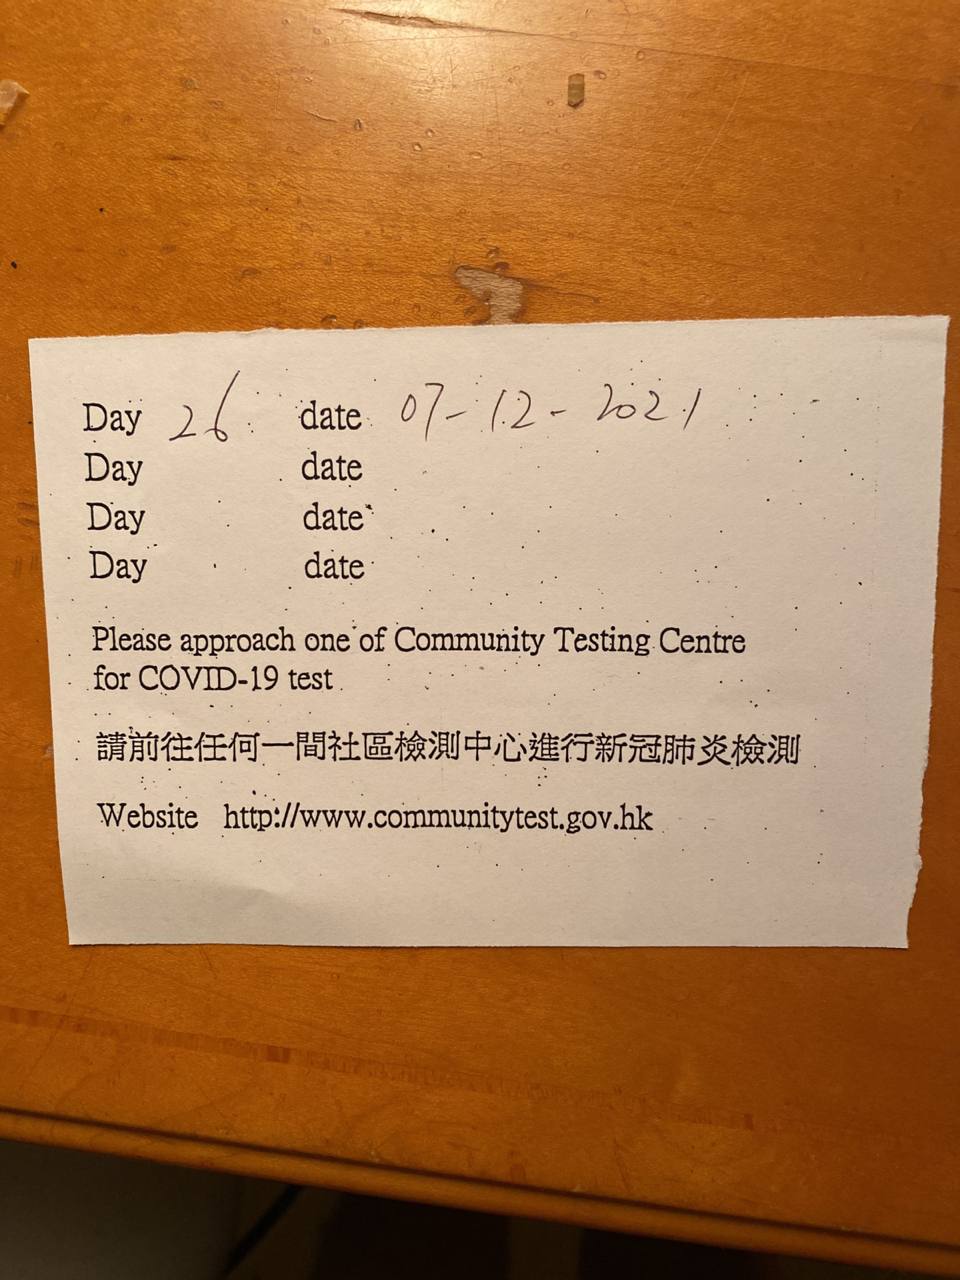 Day 26 date 07-12-2021
Day date
Day date
Day date
Please approach one of Community Testing Centre
for COVID-19 test
請前往任何一間社區檢測中心進行新冠肺炎檢測
Website http://www.communitytest.gov.hk